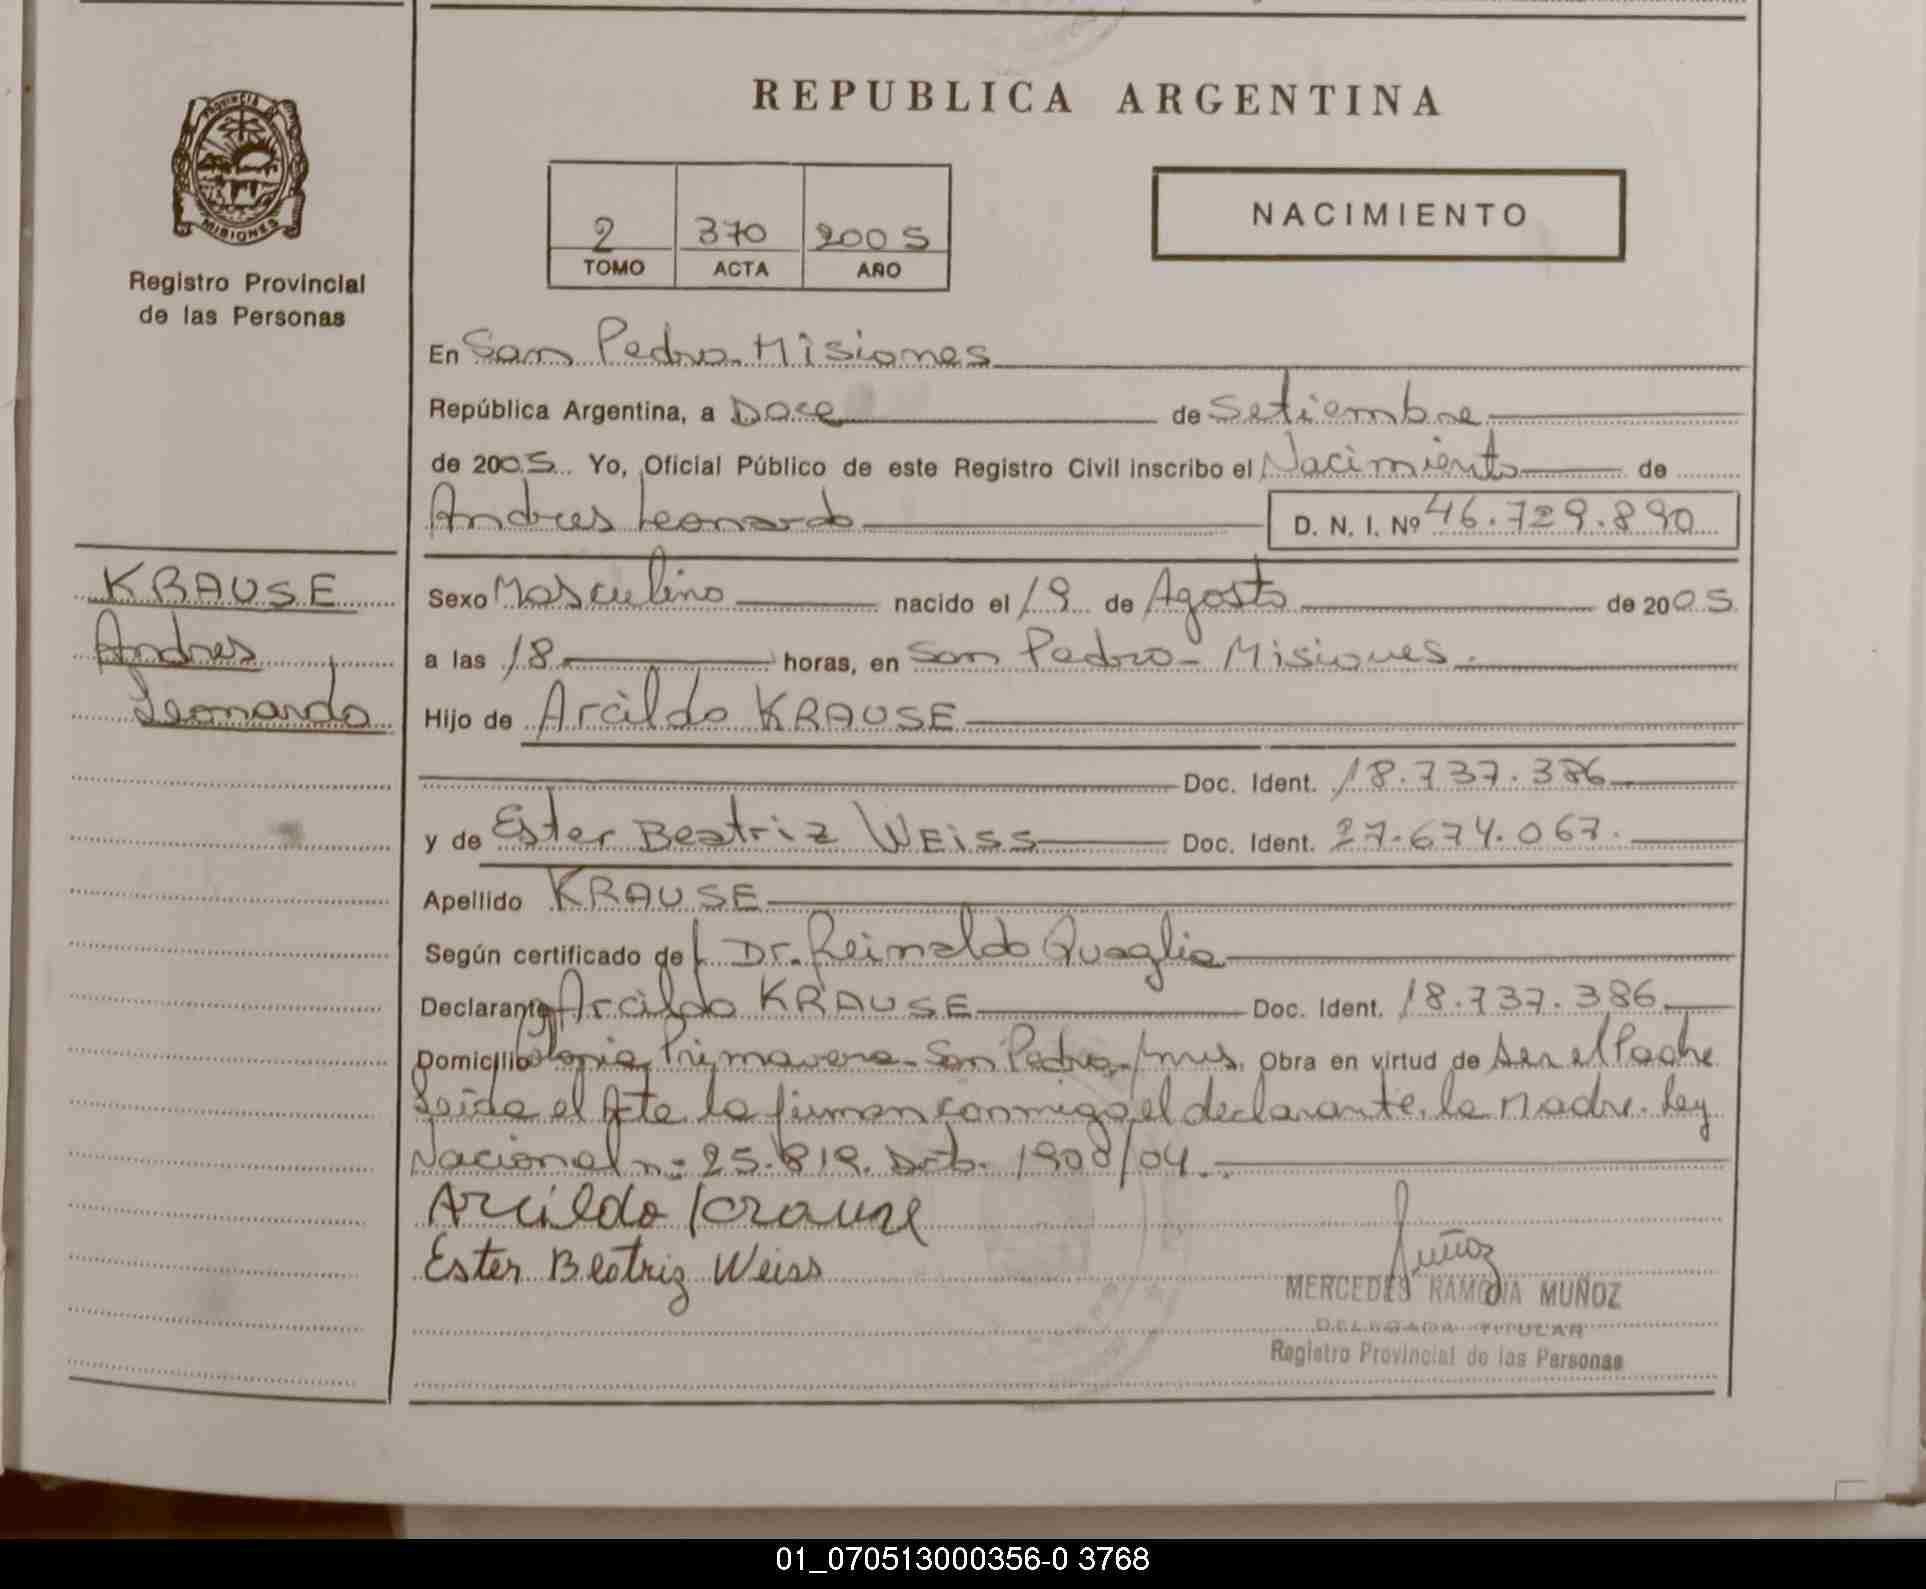 REPUBLICA ARGENTINA
PROVINCIA DE
MISIONES
Registro Provincial
de las Personas
2 370 2005
TOMO ACTA AÑO
NACIMIENTO
En San Pedro - Misiones
República Argentina, a Doce de Setiembre
de 2005 Yo, Oficial Público de este Registro Civil inscribo el Nacimiento de
Andres Leonardo D. N. I. Nº 46.729.890
KRAUSE
Andres
Leonardo
Sexo Masculino nacido el 19 de Agosto de 2005
a las 18 horas, en San Pedro - Misiones.
Hijo de Arcildo KRAUSE
Doc. Ident. 18.737.386
y de Ester Beatriz WEISS Doc. Ident. 27.674.067.
Apellido KRAUSE
Según certificado de Dr. Reinaldo Quaglia
Declarante Arcildo KRAUSE Doc. Ident. 18.737.386
Domicilio Colonia Primavera - San Pedro - Mnes. Obra en virtud de ser el Padre
Leida el Acta la firman conmigo el declarante, la Madre. Ley
Nacional n= 25.819. Dto. 1908/04.
Arcildo Krause
Ester Beatriz Weiss
Muñoz
MERCEDES RAMONA MUÑOZ
DELEGADA TITULAR
Registro Provincial de las Personas
01_070513000356-0 3768